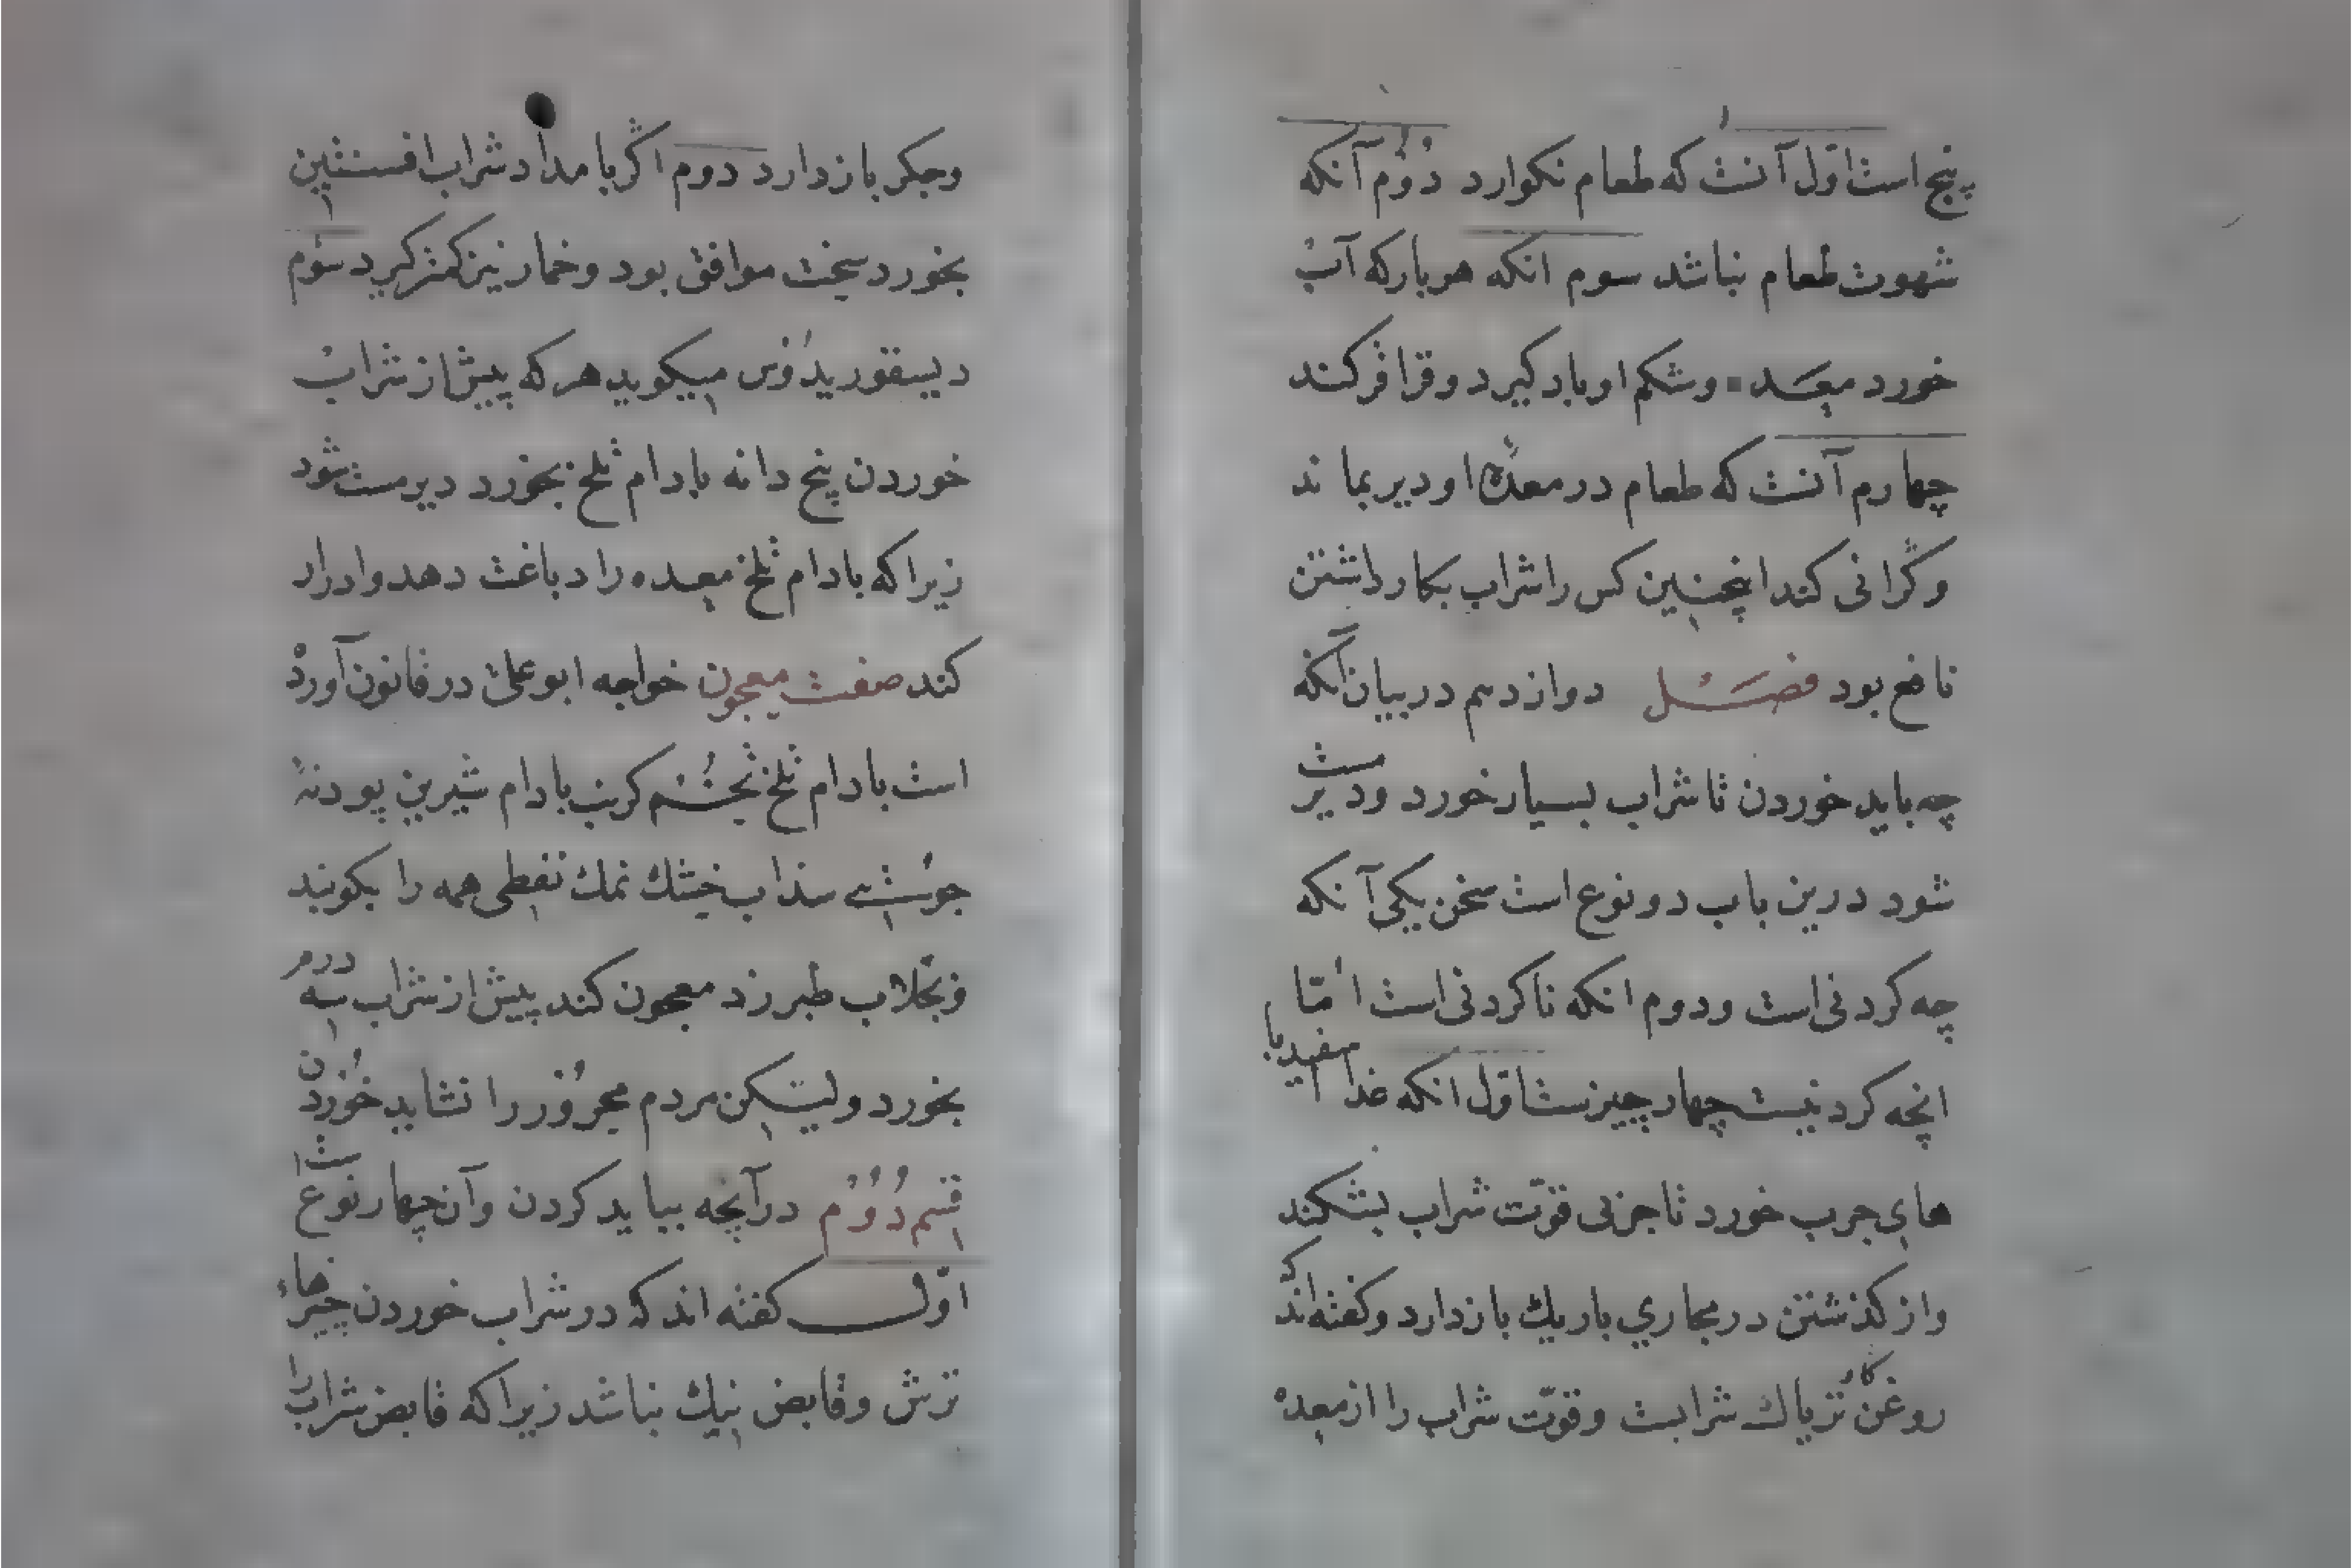 پنج است اوّل آنست که طعام نکوارد دوُم آنکه
شهوت طعام نباشد سوم انکه هربارکه آب
خورد معده وشکم اوباد کیرد و قراقر کند
چهارم آنست که طعام در معدهٔ او دیر بماند
وکرانی کند اینچنین کس را شراب بکار داشتن
نافع بود فصل دوازدهم دربیان آنکه
چه باید خوردن تا شراب بسیار خورد و دیر مست
شود درین باب دو نوع است سخن یکی آنکه
چه کردنی است ودوم انکه ناکردنی است امّا
انچه کردنیست چهار چیزست اوّل انکه غذا سفیدبا
های چرب خورد تا چربی قوّت شراب بشکند
واز کذشتن در مجاری باریك بازدارد وکفته‌اند که
روغن کاو تریاك شرابست وقوّت شراب را از معده
وجکر بازدارد دوم اکر بامداد شراب افسنتین
بخورد سخت موافق بود وخمار نیز کمتر کیرد سوُم
دیسقوریدوُس میکوید هرکه پیش از شراب
خوردن پنج دانه بادام تلخ بخورد دیرمست شود
زیراکه بادام تلخ معده را دباغت دهد وادرار
کند صفت معجون خواجه ابوعلی در قانون آورده
است بادام تلخ تخُم کرنب بادام شیرین پودنهٔ
جوُشے سذاب خشك نمك نفطی همه را بکوبند
وبجّلاب طبرزد معجون کند پیش از شراب سه درم
بخورد ولیکن مردم محروُر را نشاید خوُردن
قسم دوُم درآنچه بباید کردن وآن چهار نوع است
اوّل کفته اند که در شراب خوردن چیزهاء
ترش وقابض نیك نباشد زیراکه قابض شراب را